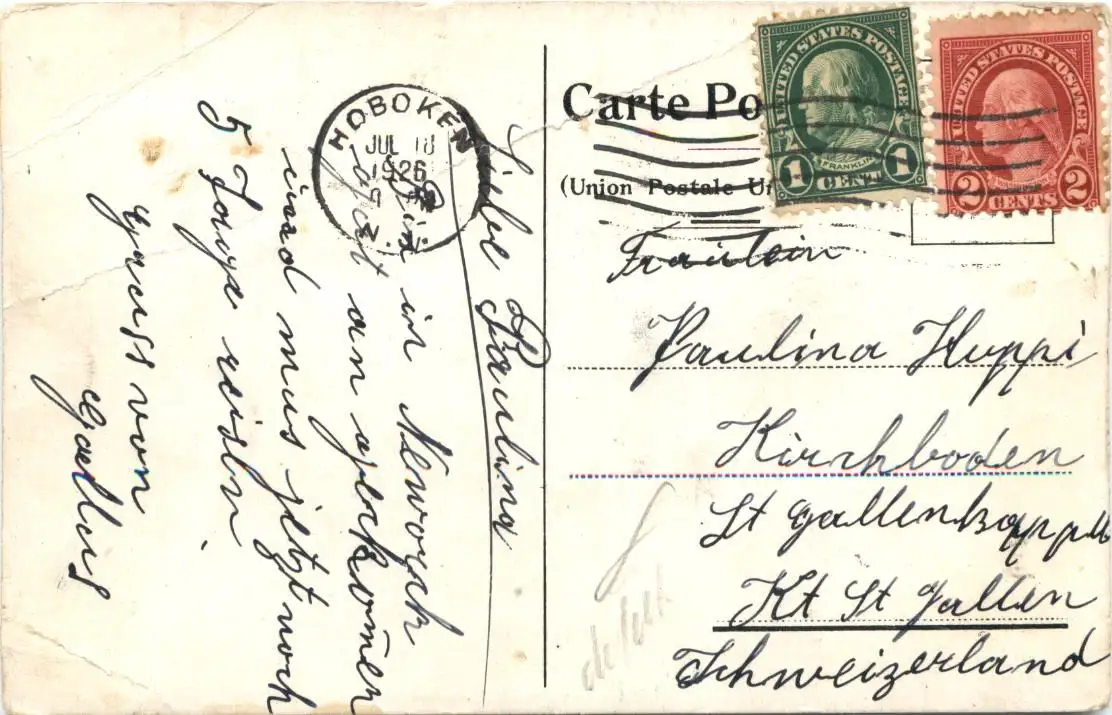 Carte Po
(Union Postale U
UNITED STATES POSTAGE
FRANKLIN
1 CENT 1
UNITED STATES POSTAGE
2 CENTS 2
HOBOKEN
JUL 18
1926
N.J.
Liebe Paulina
Bin in Newyork
gut angekomen
und mus jetzt noch
5 Tage reisen
gruss von
Gallus
Fraülein
Paulina Huppi
Kirchboden
St Gallenkappel
Kt St Gallen
Schweizerland